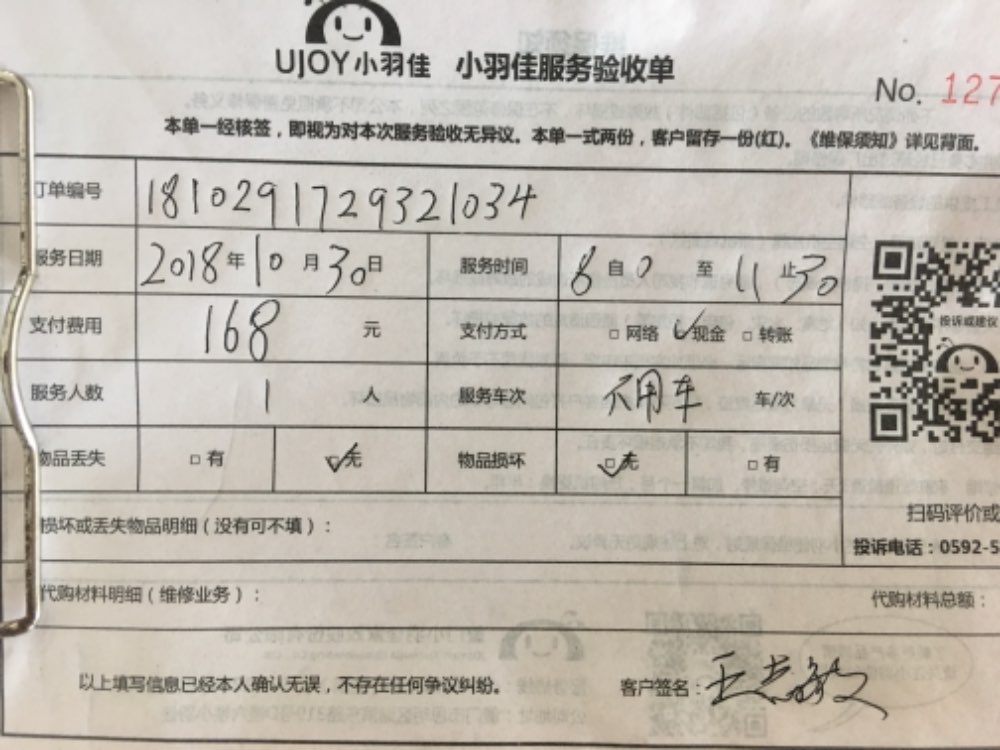 UJOY小羽佳 小羽佳服务验收单
No. 127
本单一经核签，即视为对本次服务验收无异议。本单一式两份，客户留存一份(红)。《维保须知》详见背面。
订单编号 1810291729321034
服务日期 2018年10月30日 服务时间 8自0至11止30
投诉或建议
支付费用 168元 支付方式 □网络 ☑现金 □转账
服务人数 1人 服务车次 不用车 车/次
物品丢失 □有 ☑无 物品损坏 ☑无 □有
扫码评价或
损坏或丢失物品明细（没有可不填）：
投诉电话：0592-5
代购材料明细（维修业务）：
代购材料总额：
以上填写信息已经本人确认无误，不存在任何争议纠纷。 客户签名：王志敏